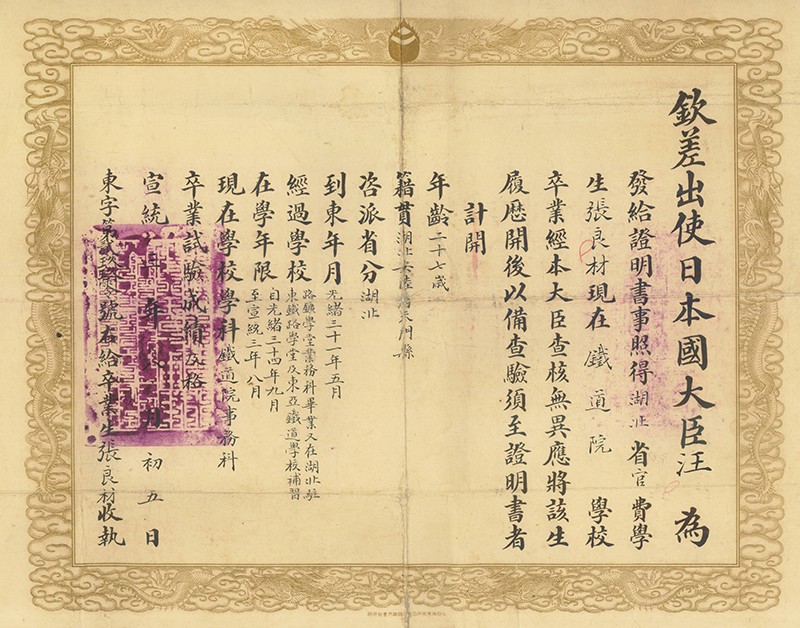 欽差出使日本國大臣汪 為
發給證明書事照得湖北省官費學
生張良材現在鐵道院學校
卒業經本大臣查核無異應將該生
履歷開後以備查驗須至證明書者
計開
年齡二十七歲
籍貫湖北天門縣
咨派省分湖北
到東年月光緒三十一年五月
經過學校路鑛學堂業務科畢業又在湖北駐
東鐵路學堂及東亞鐵道學校補習
在學年限自光緒三十四年九月
至宣統三年八月
現在學校學科鐵道院事務科
卒業試驗成績及格
宣統年月初五日
東字第號右給卒業生張良材收執